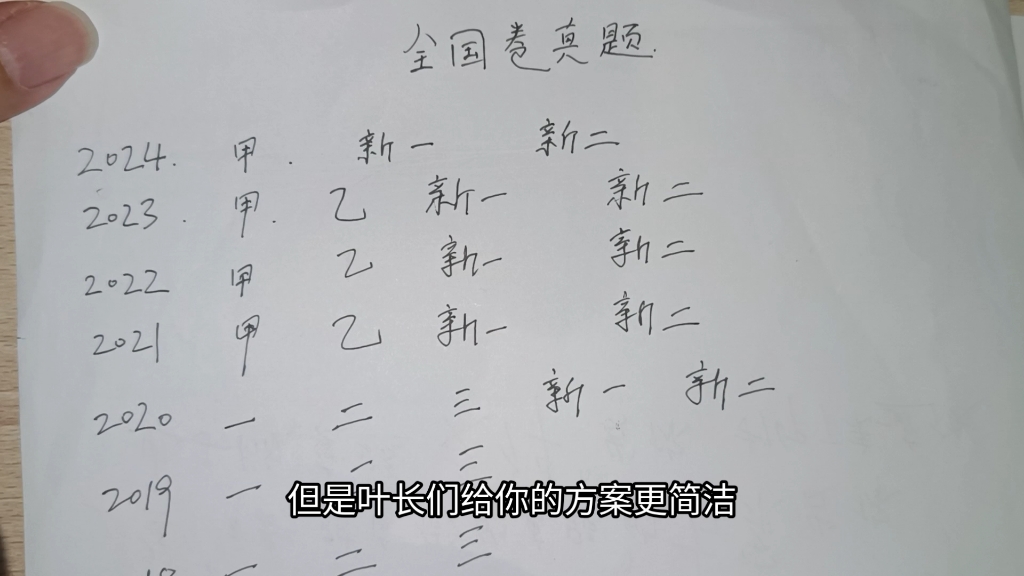 全国卷真题.
2024. 甲. 新一 新二
2023. 甲. 乙 新一 新二
2022 甲 乙 新一 新二
2021 甲 乙 新一 新二
2020 一 二 三 新一 新二
2019 一 二 三
但是叶长们给你的方案更简洁
一 二 三